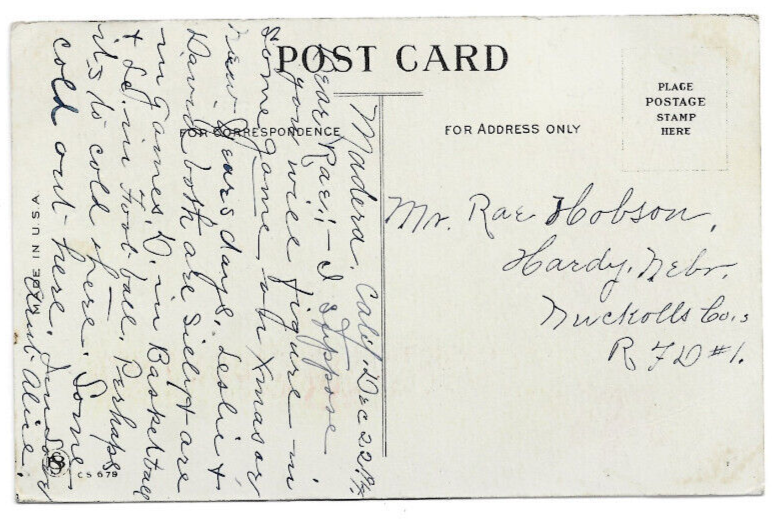 POST CARD
FOR CORRESPONDENCE
FOR ADDRESS ONLY
PLACE
POSTAGE
STAMP
HERE
Madera, Calif. Dec 22
Dear Rae:- I suppose
you will figure in
some game on Xmas or
New Years days. Leslie &
David both are
in games. D. in Basket ball
& Le. in Foot ball. Perhaps
its to cold here. Some
cold out here.
Aunt Alice
Mr. Rae Hobson,
Hardy, Nebr.
Nuckolls Co.,
R F D #1.
MADE IN U.S.A.
CS 679